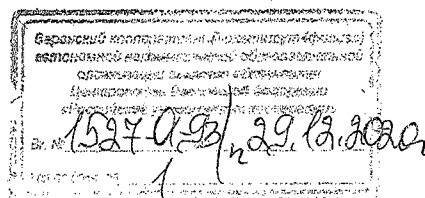 Саранский кооперативный институт (филиал)
автономной некоммерческой образовательной
организации высшего образования
Центросоюза Российской Федерации
«Российский университет кооперации»
Вх. № 1527-А.93/п 29.12.2020г
1